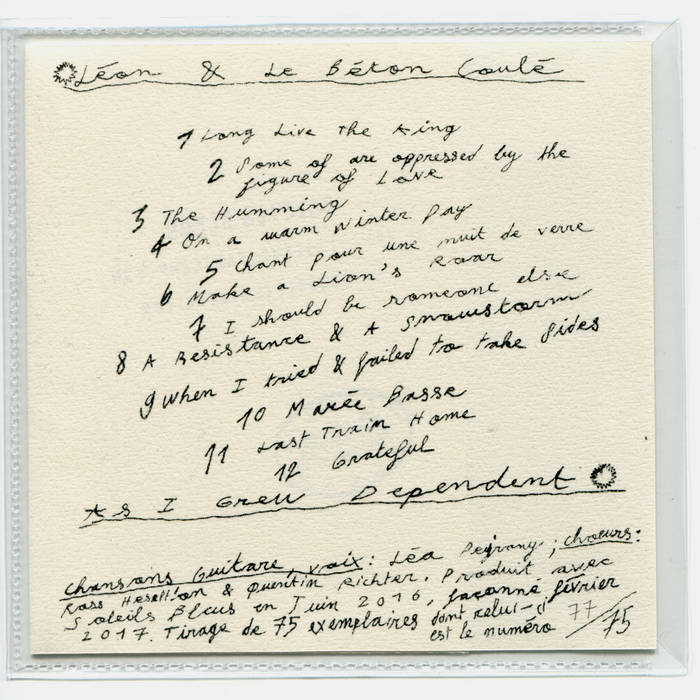 Léon & Le Béton Coulé
1 Long Live The King
2 Some of are oppressed by the
figure of Love
3 The Humming
4 On a warm Winter Day
5 Chant pour une nuit de verre
6 Make a Lion's Roar
7 I should be someone else
8 A Resistance & A Snowstorm
9 When I tried & failed to take Sides
10 Marée Basse
11 Last Train Home
12 Grateful
As I Grew Dependent
Chansons Guitare, voix: Léa ; choeurs:
Ross & Quentin Richter. Produit avec
Soleils Bleus en Juin 2016, façonné février
2017. Tirage de 75 exemplaires dont celui-ci
est le numéro /75